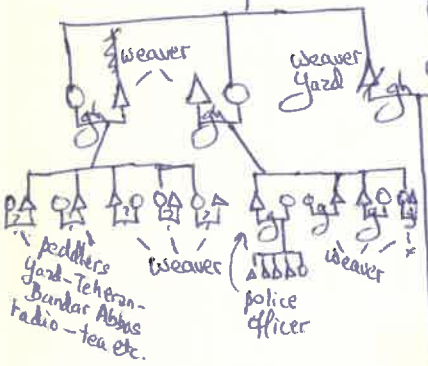 weaver
weaver
Yazd
gh
gh
gh
? ? ? ?
g g g g
peddlers
Yazd-Teheran-
Bandar Abbas
radio-tea etc.
weaver
police
officer
weaver